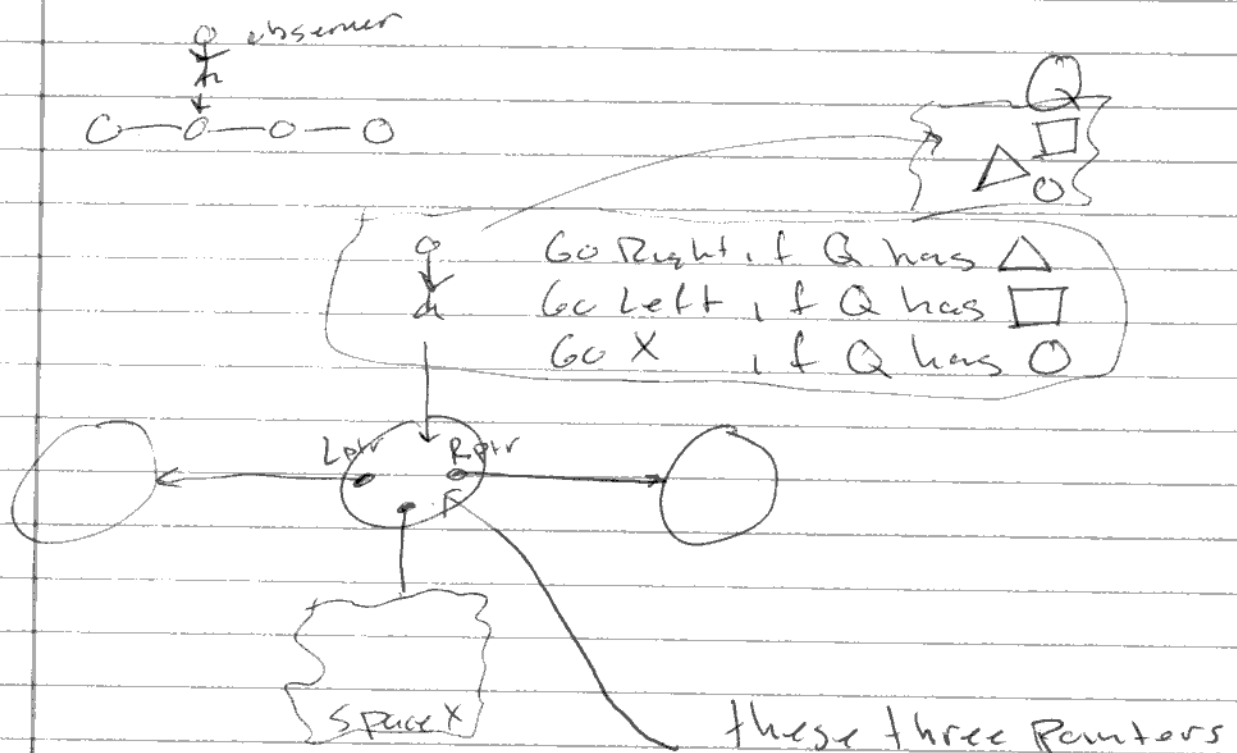 observer
Q
Go Right if Q has
Go Left if Q has
Go X if Q has
Lptr Rptr
Space X
these three Pointers